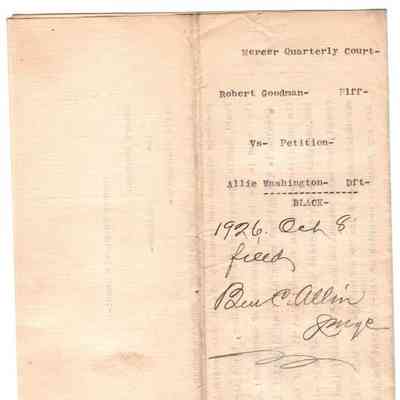 Mercer Quarterly Court-
Robert Goodman- Plff-
Vs- Petition-
Allie Washington- Dft-
BLACK-
1926. Oct 8
filed
Ben C. Allin
Judge